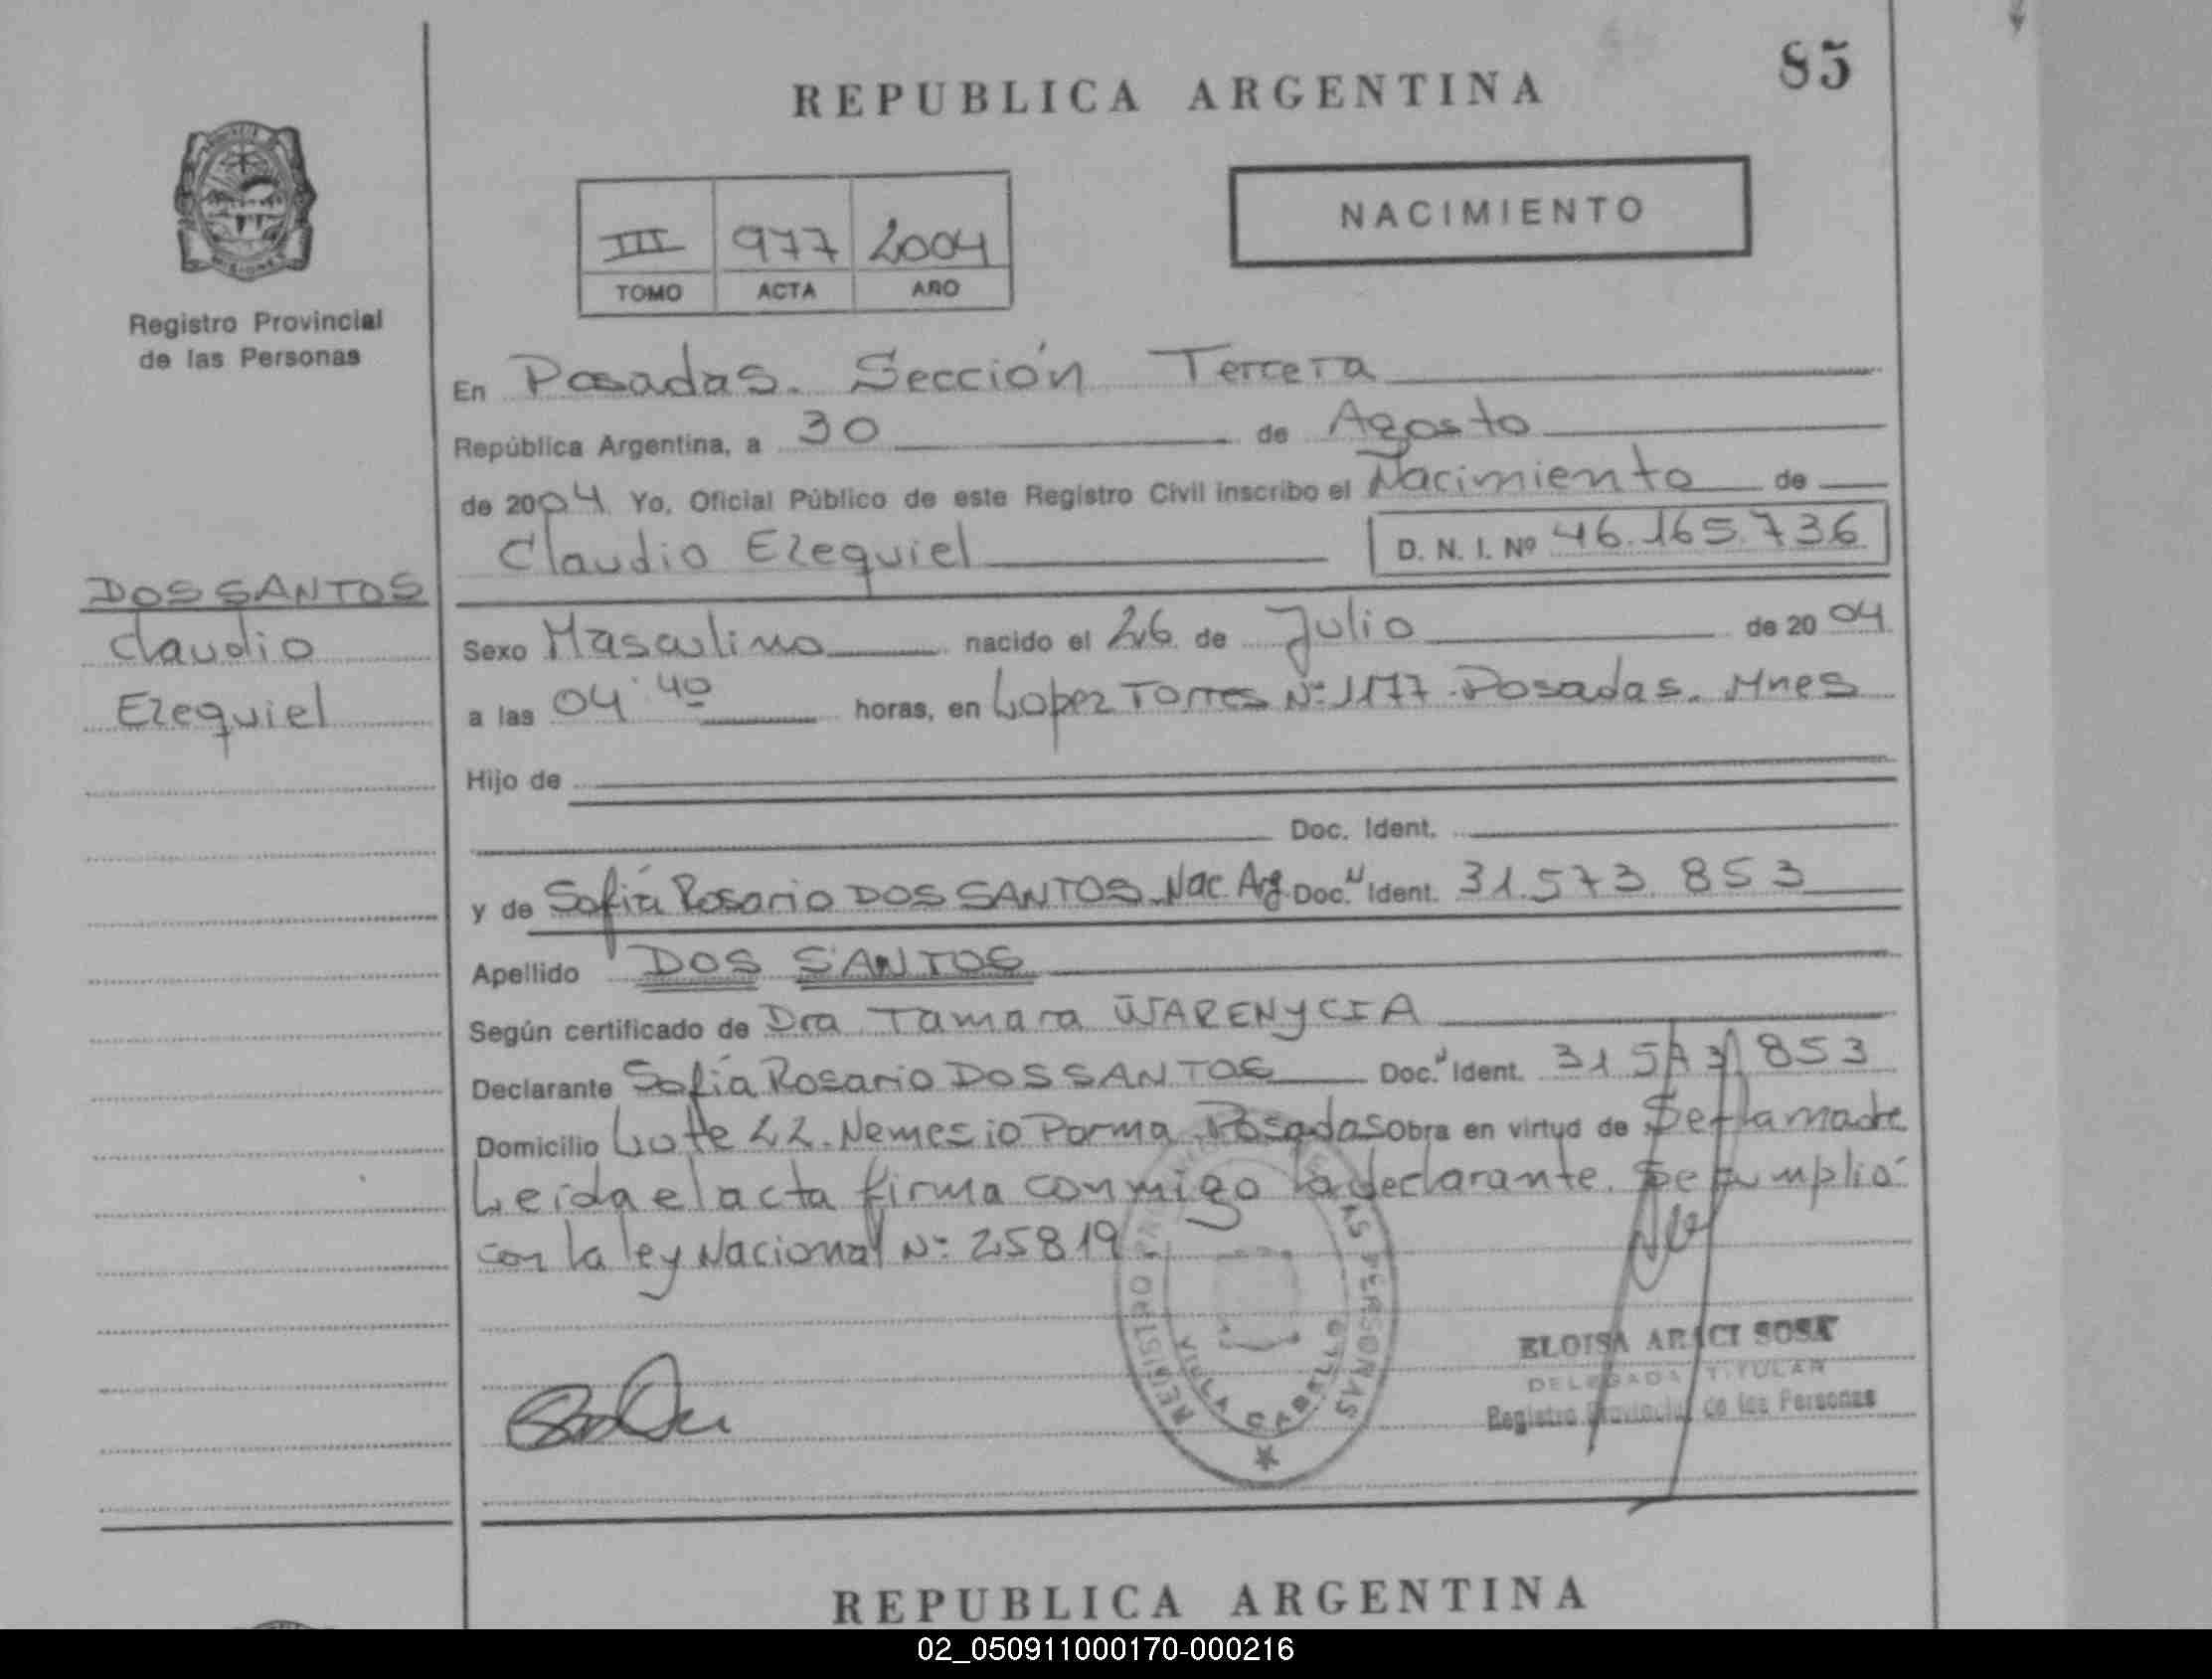 85
REPUBLICA ARGENTINA
NACIMIENTO
III 977 2004
TOMO ACTA AÑO
MISIONES
Registro Provincial
de las Personas
DOS SANTOS
Claudio
Ezequiel
En Posadas. Sección Tercera
República Argentina, a 30 de Agosto
de 2004 Yo, Oficial Público de este Registro Civil inscribo el Nacimiento de
Claudio Ezequiel D. N. I. Nº 46.165.736
Sexo Masculino nacido el 26 de Julio de 2004
a las 04:40 horas, en Lopez Torres Nº 1177 Posadas. Mnes
Hijo de
Doc. Ident.
y de Sofía Rosario DOS SANTOS. Nac. Arg. Doc. Ident. 31.573.853
Apellido DOS SANTOS
Según certificado de Dra Tamara WARENYCIA
Declarante Sofía Rosario DOS SANTOS Doc. Ident. 31 573 853
Domicilio Lote 22. Nemesio Parma. Posadas obra en virtud de Ser la madre
Leída el acta firma conmigo la declarante. Se cumplió
con la ley Nacional Nº 25819.
REGISTRO LAS PERSONAS
VILLA CABELLO
ELOISA ARACI SOSA
DELEGADA TITULAR
Registro Provincial de las Personas
REPUBLICA ARGENTINA
02_050911000170-000216